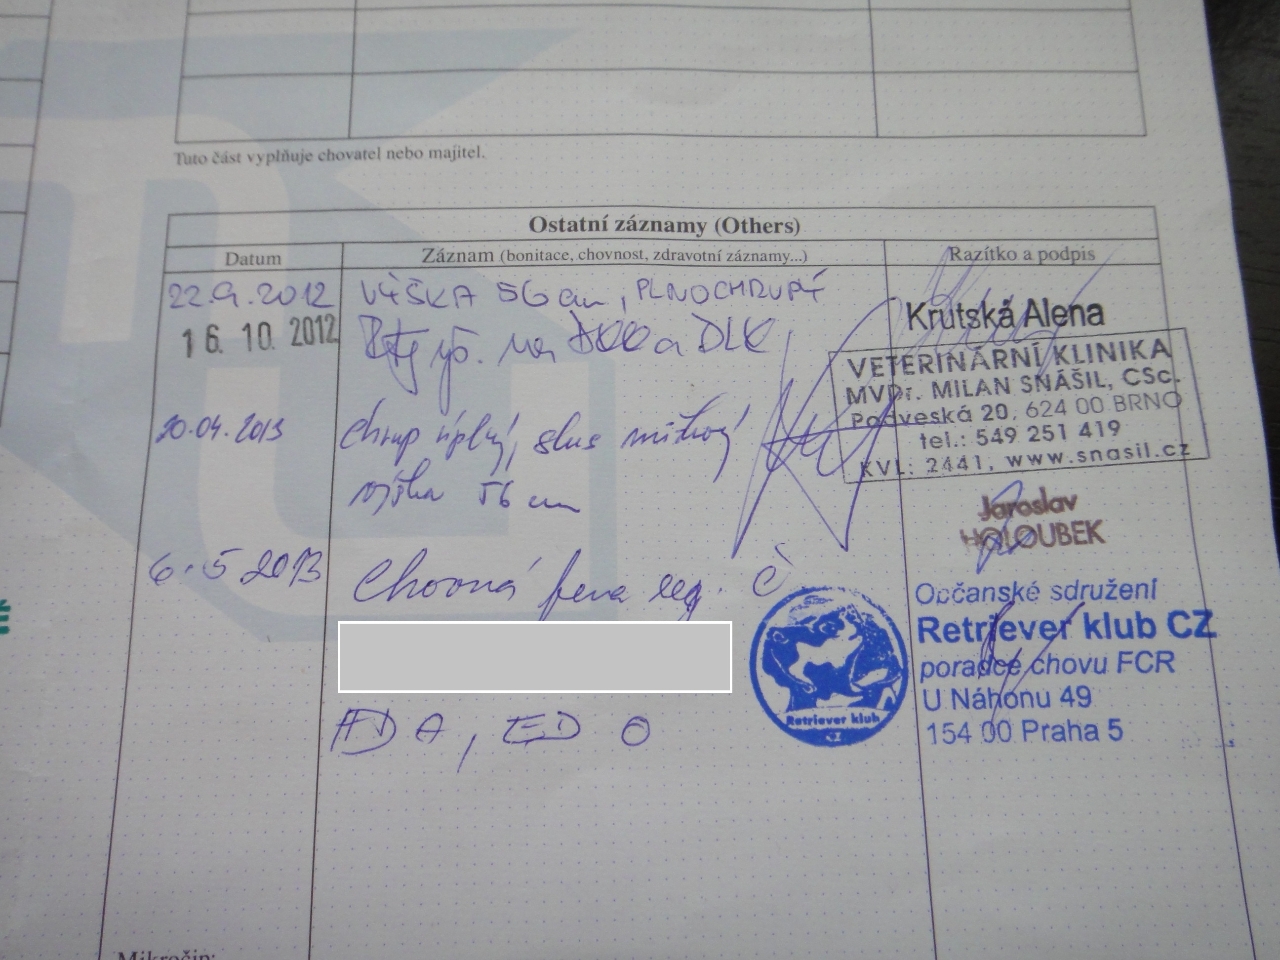 Tuto část vyplňuje chovatel nebo majitel.
Ostatní záznamy (Others)
Datum
Záznam (bonitace, chovnost, zdravotní záznamy...)
Razítko a podpis
22.9.2012
VÝŠKA 56 cm, PLNOCHRUPÝ
Krutská Alena
16. 10. 2012
DKK a DLK
VETERINÁRNÍ KLINIKA
MVDr. MILAN SNÁŠIL, CSc.
Podveská 20, 624 00 BRNO
tel.: 549 251 419
KVL: 2441, www.snasil.cz
20.04.2013
Chrup úplný, skus nůžkový
výška 56 cm
Jaroslav
HOLOUBEK
6.5 2013
Chovná fena reg. č
Občanské sdružení
Retriever klub CZ
poradce chovu FCR
U Náhonu 49
154 00 Praha 5
Retriever klub
CZ
HD A, ED 0
Mikročip: